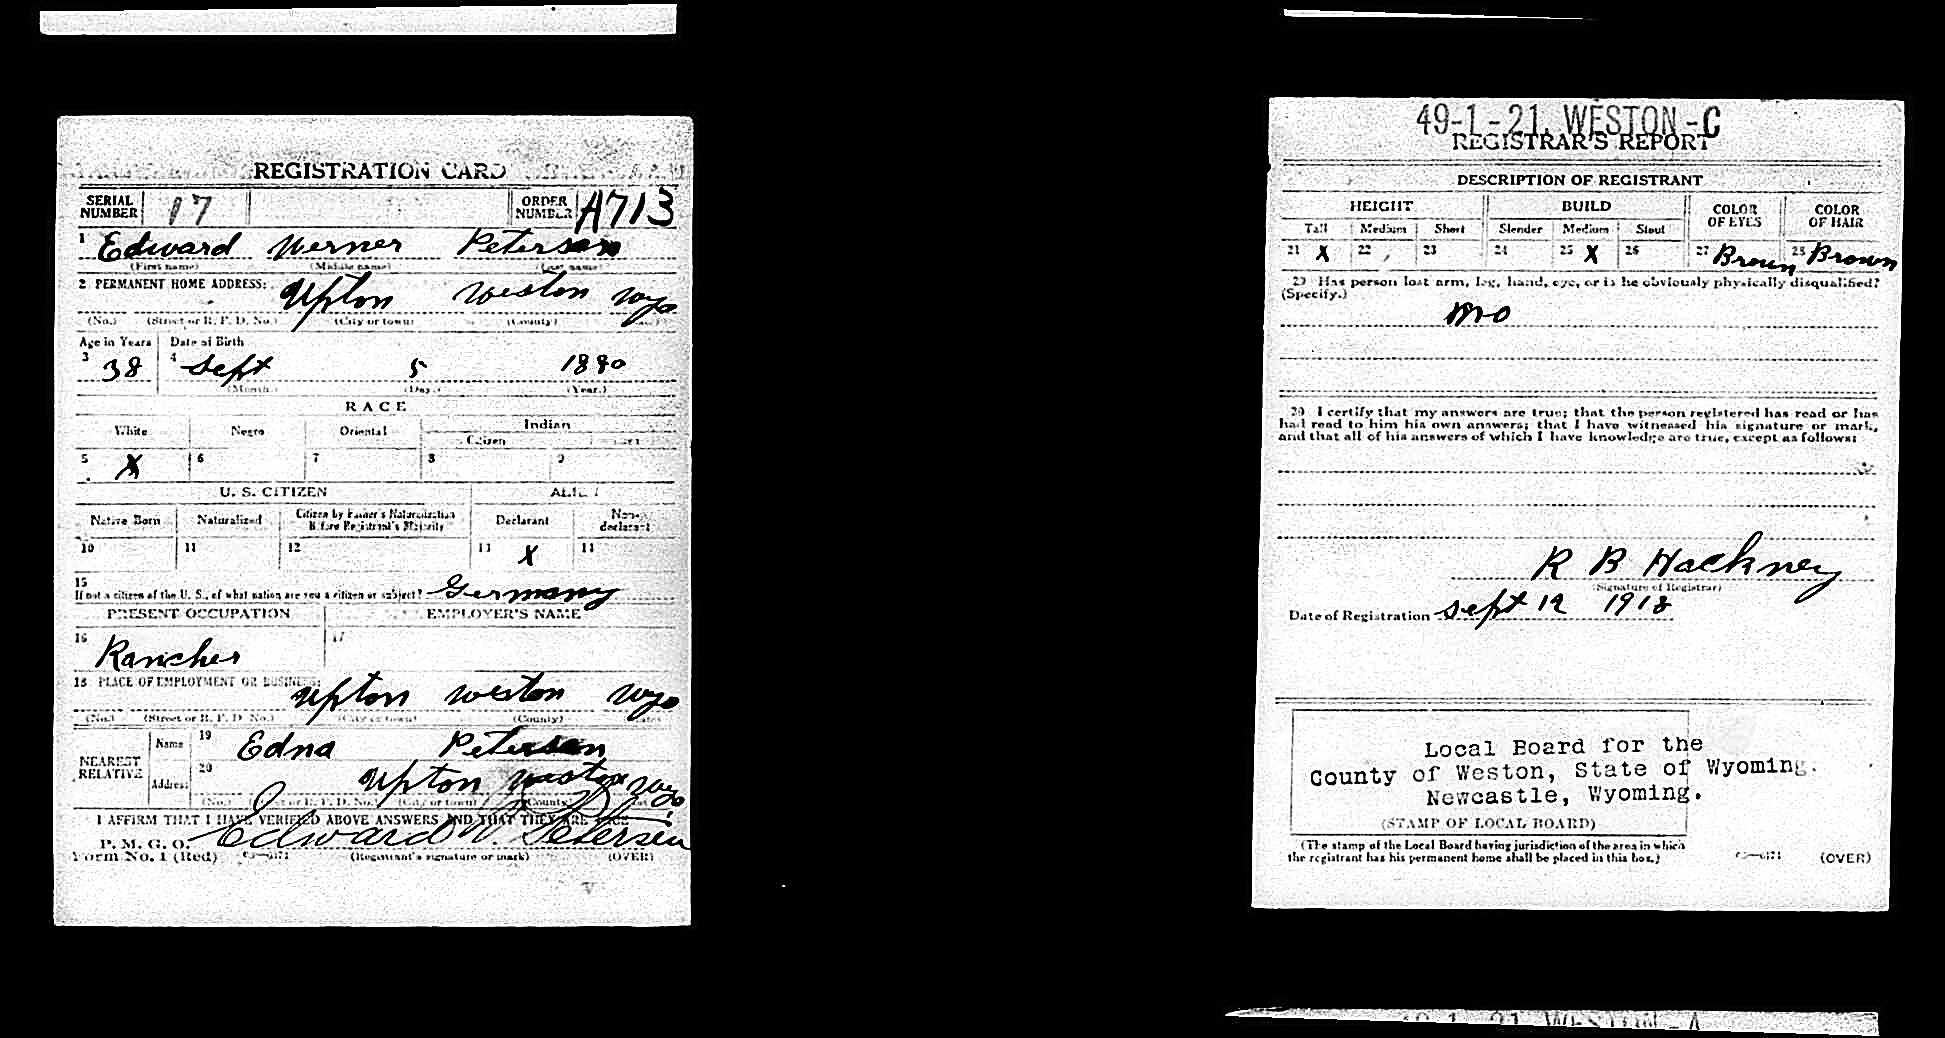 REGISTRATION CARD
SERIAL NUMBER 17 ORDER NUMBER A713
1 Edward Werner Petersen
(First name) (Middle name) (Last name)
2 PERMANENT HOME ADDRESS:
Upton Weston Wyo
(No.) (Street or R. F. D. No.) (City or town) (County)
Age in Years Date of Birth
3 38 4 Sept 5 1880
(Month.) (Day.) (Year.)
RACE
White Negro Oriental Indian
Citizen
5 X 6 7 8 9
U. S. CITIZEN ALIEN
Native Born Naturalized Citizen by Father's Naturalization Before Registrant's Majority Declarant Non-declarant
10 11 12 13 X 14
15
If not a citizen of the U. S., of what nation are you a citizen or subject? Germany
PRESENT OCCUPATION EMPLOYER'S NAME
16 Rancher 17
18 PLACE OF EMPLOYMENT OR BUSINESS:
Upton Weston Wyo
(No.) (Street or R. F. D. No.) (City or town) (County)
NEAREST RELATIVE
Name 19 Edna Petersen
Address 20 Upton Weston Wyo
(No.) (Street or R. F. D. No.) (City or town) (County)
I AFFIRM THAT I HAVE VERIFIED ABOVE ANSWERS AND THAT THEY ARE TRUE
P. M. G. O.
Form No. 1 (Red) Edward W. Petersen
(Registrant's signature or mark) (OVER)
49-1-21. WESTON-C
REGISTRAR'S REPORT
DESCRIPTION OF REGISTRANT
HEIGHT BUILD COLOR OF EYES COLOR OF HAIR
Tall Medium Short Slender Medium Stout
21 X 22 23 24 25 X 26 27 Brown 28 Brown
29 Has person lost arm, leg, hand, eye, or is he obviously physically disqualified?
(Specify.)
no
30 I certify that my answers are true; that the person registered has read or has
had read to him his own answers; that I have witnessed his signature or mark,
and that all of his answers of which I have knowledge are true, except as follows:
R B Hackney
(Signature of Registrar)
Date of Registration Sept 12 1918
Local Board for the
County of Weston, State of Wyoming.
Newcastle, Wyoming.
(STAMP OF LOCAL BOARD)
(The stamp of the Local Board having jurisdiction of the area in which
the registrant has his permanent home shall be placed in this box.)
(OVER)